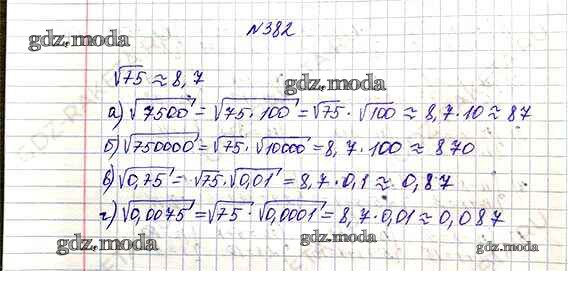 №382
gdz.moda
√75 ≈ 8,7
gdz.moda
а) √7500 = √75·100 = √75 · √100 ≈ 8,7·10 ≈ 87
б) √750000 = √75 · √10000 = 8,7·100 ≈ 870
в) √0,75 = √75·√0,01 = 8,7·0,1 ≈ 0,87
г) √0,0075 = √75 · √0,0001 = 8,7·0,01 ≈ 0,087
gdz.moda
gdz.moda
gdz.moda